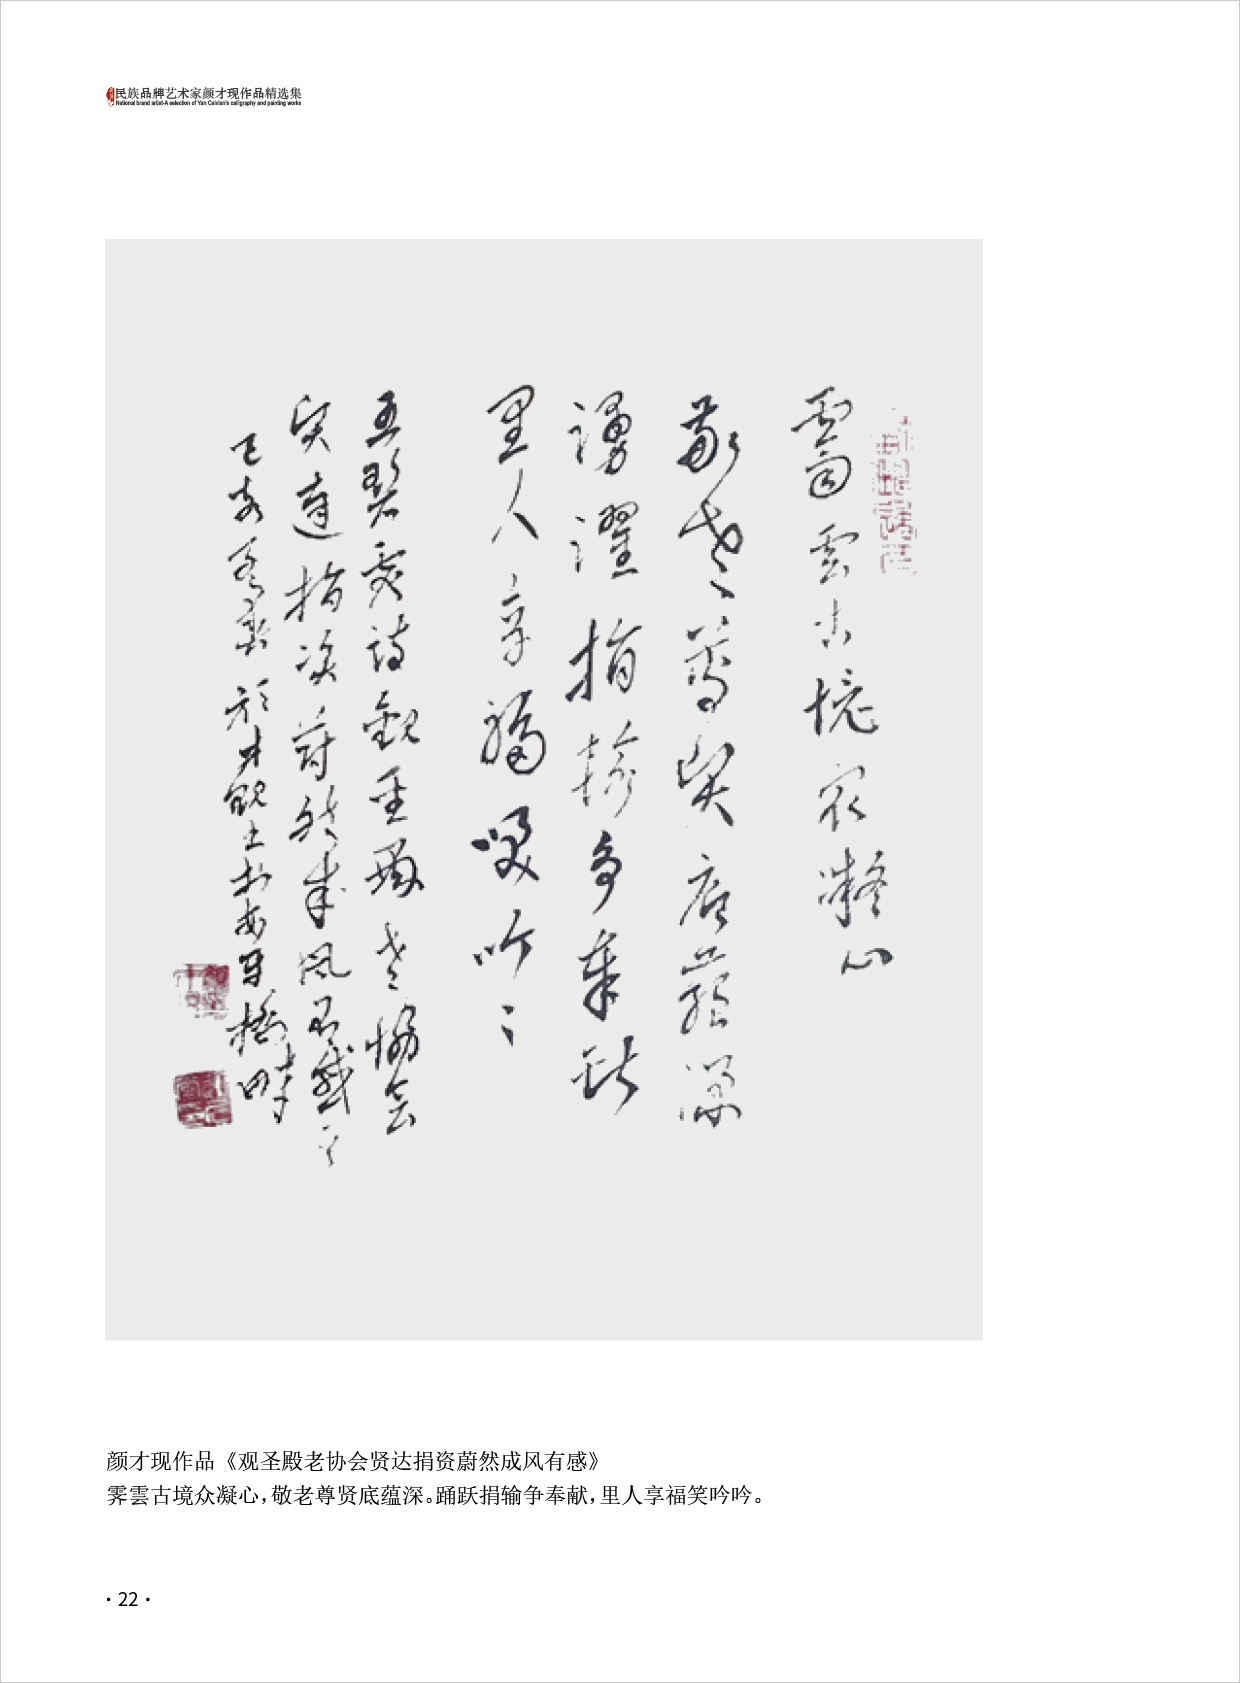 民族品牌艺术家颜才现作品精选集
National brand artist-A selection of Yan Caixian's calligraphy and painting works
霁雲古境众凝心
敬老尊贤底蕴深
踊躍捐输争奉献
里人享福笑吟〻
五碧 诗觀圣殿老协会
贤達捐资蔚然成风有感
己亥 於 觀 安 橋畔
颜才现作品《观圣殿老协会贤达捐资蔚然成风有感》
霁雲古境众凝心，敬老尊贤底蕴深。踊跃捐输争奉献，里人享福笑吟吟。
·22·